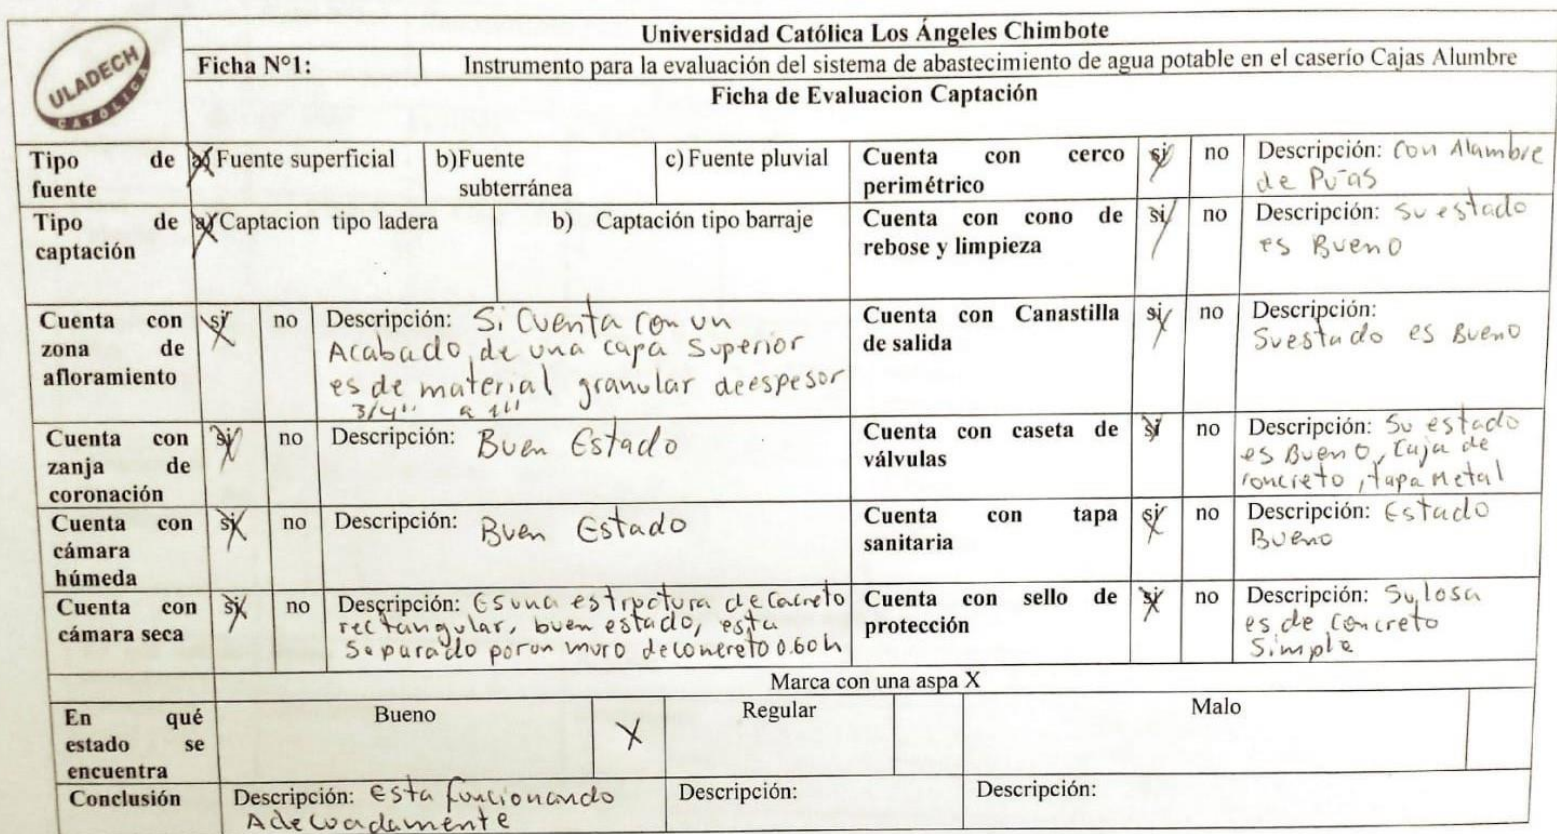 ULADECH
CATÓLICA
Universidad Católica Los Ángeles Chimbote
Ficha N°1:
Instrumento para la evaluación del sistema de abastecimiento de agua potable en el caserío Cajas Alumbre
Ficha de Evaluacion Captación
Tipo de
fuente
a) Fuente superficial
b)Fuente
subterránea
c) Fuente pluvial
Cuenta con cerco
perimétrico
si
no
Descripción: Con Alambre
de Púas
Tipo de
captación
a) Captacion tipo ladera
b) Captación tipo barraje
Cuenta con cono de
rebose y limpieza
si
no
Descripción: Su estado
es Bueno
Cuenta con
zona de
afloramiento
si
no
Descripción: Si Cuenta con un
Acabado, de una capa Superior
es de material granular de espesor
3/4" a 1"
Cuenta con Canastilla
de salida
si
no
Descripción:
Su estado es Bueno
Cuenta con
zanja de
coronación
si
no
Descripción: Buen Estado
Cuenta con caseta de
válvulas
si
no
Descripción: Su estado
es Bueno, Caja de
concreto, tapa Metal
Cuenta con
cámara
húmeda
si
no
Descripción: Buen Estado
Cuenta con tapa
sanitaria
si
no
Descripción: Estado
Bueno
Cuenta con
cámara seca
si
no
Descripción: Es una estructura de Cacreto
rectangular, buen estado, esta
Separado por un muro de concreto 0.60 h
Cuenta con sello de
protección
si
no
Descripción: Su losa
es de Concreto
Simple
Marca con una aspa X
En qué
estado se
encuentra
Bueno
X
Regular
Malo
Conclusión
Descripción: esta funcionando
Adecuadamente
Descripción:
Descripción: